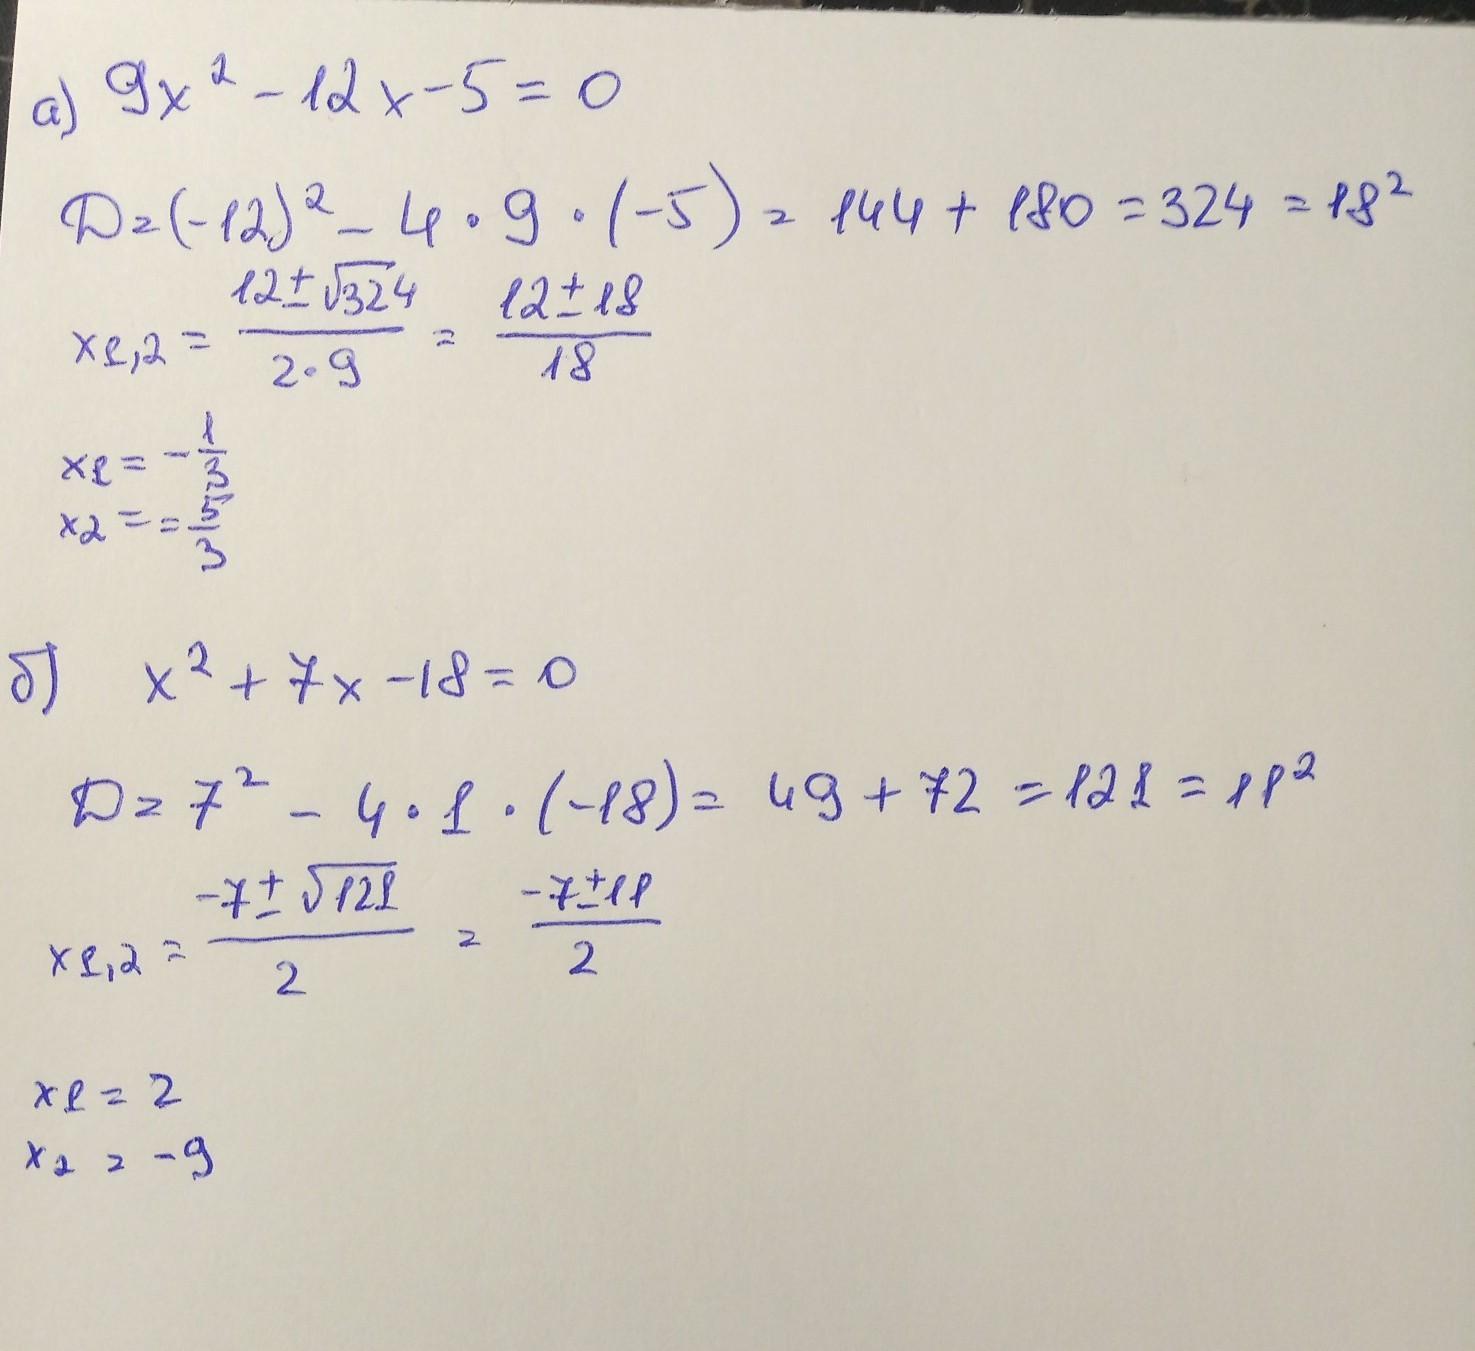 а) 9x² - 12x - 5 = 0
D = (-12)² - 4 · 9 · (-5) = 144 + 180 = 324 = 18²
x1,2 = (12 ± √324)/(2·9) = (12 ± 18)/18
x1 = -1/3
x2 = = 5/3
б) x² + 7x - 18 = 0
D = 7² - 4 · 1 · (-18) = 49 + 72 = 121 = 11²
x1,2 = (-7 ± √121)/2 = (-7 ± 11)/2
x1 = 2
x2 = -9